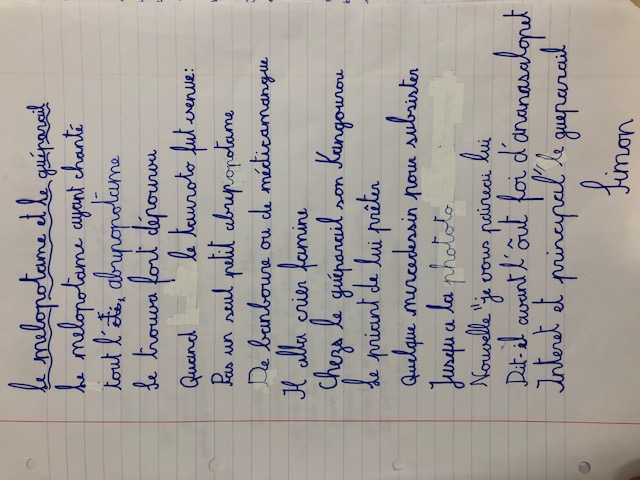 Le melopotame et le guéparail
Le melopotame ayant chanté
tout l'été, abrupopotame
Se trouva fort dépourvu
Quand le tauroto fut venue:
Pas un seul petit abrupopotame
De banboure ou de médicamangue
Il alla crier famine
Chers le guéparail son Kangourou
Le priant de lui prêter
Quelque mircedessin pour subsister
Jusqu'a la phototo
Nouvelle "je vous pairai lui
Dit-il avant l'ôut foi d'ananasalopet
Interet et principal" le gueparail
Simon